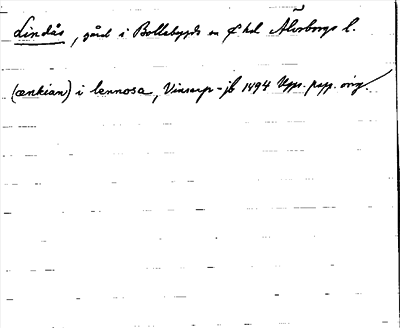 Lindås, gård i Bollebygds sn o hd Älvsborgs l.
(ænkian) i lennosa, Vinsarp-jb 1494 Upps. papp. orig.